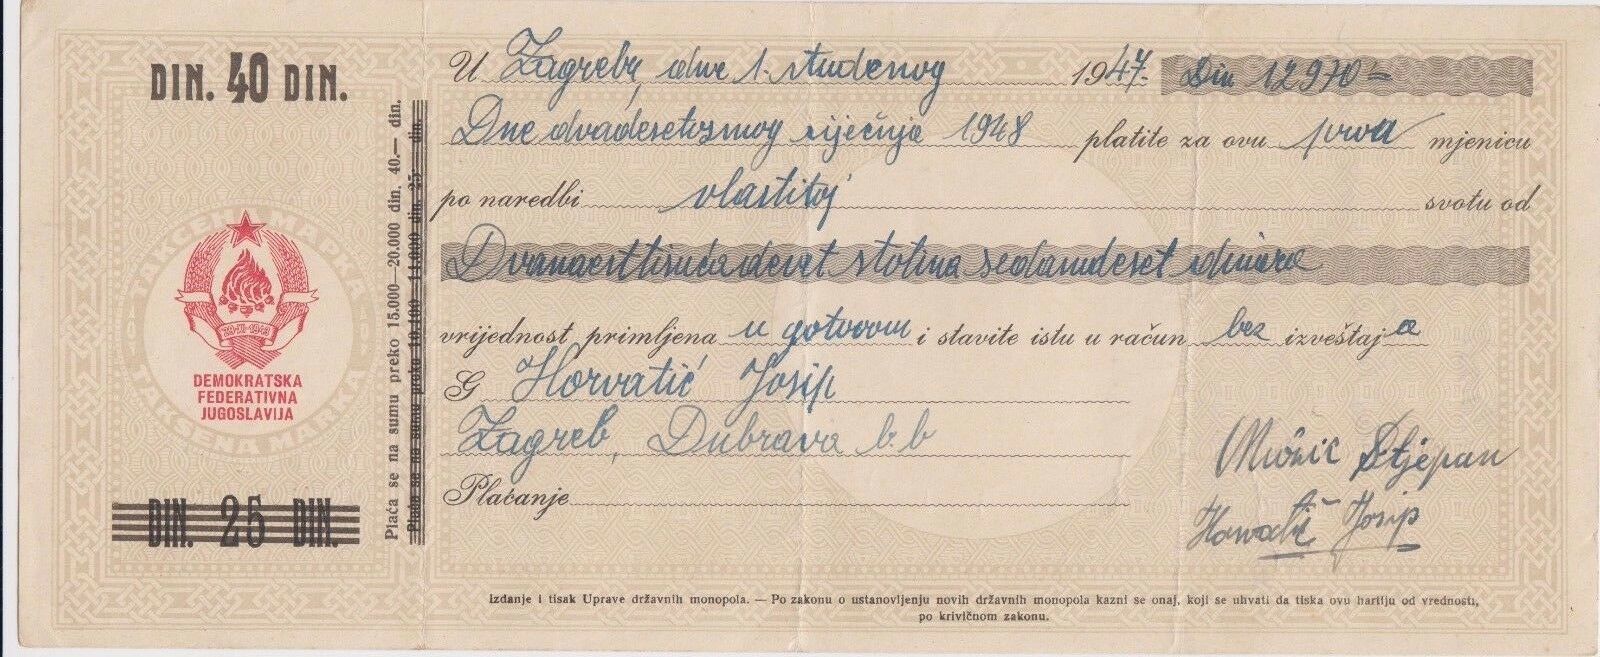 DIN. 40 DIN.
ТАКСЕНА МАРКА
29-XI-1943
DEMOKRATSKA
FEDERATIVNA
JUGOSLAVIJA
TAKSENA MARKA
DIN. 25 DIN.
Plaća se na sumu preko 15.000—20.000 din. 40.— din.
Plaća se na sumu preko din. 25 din.
U Zagrebu, dne 1. studenog 1947. Din 12970=
Dne dvadesetosmog siječnja 1948 platite za ovu prva mjenicu
po naredbi vlastitoj svotu od
Dvanaesttisućadevet stotina sedamdeset dinara
vrijednost primljena u gotovom i stavite istu u račun bez izveštaja
G Horvatić Josip
Zagreb, Dubrava b.b
Plaćanje
Stjepan
Horvatić Josip
Izdanje i tisak Uprave državnih monopola. — Po zakonu o ustanovljenju novih državnih monopola kazni se onaj, koji se uhvati da tiska ovu hartiju od vrednosti,
po krivičnom zakonu.